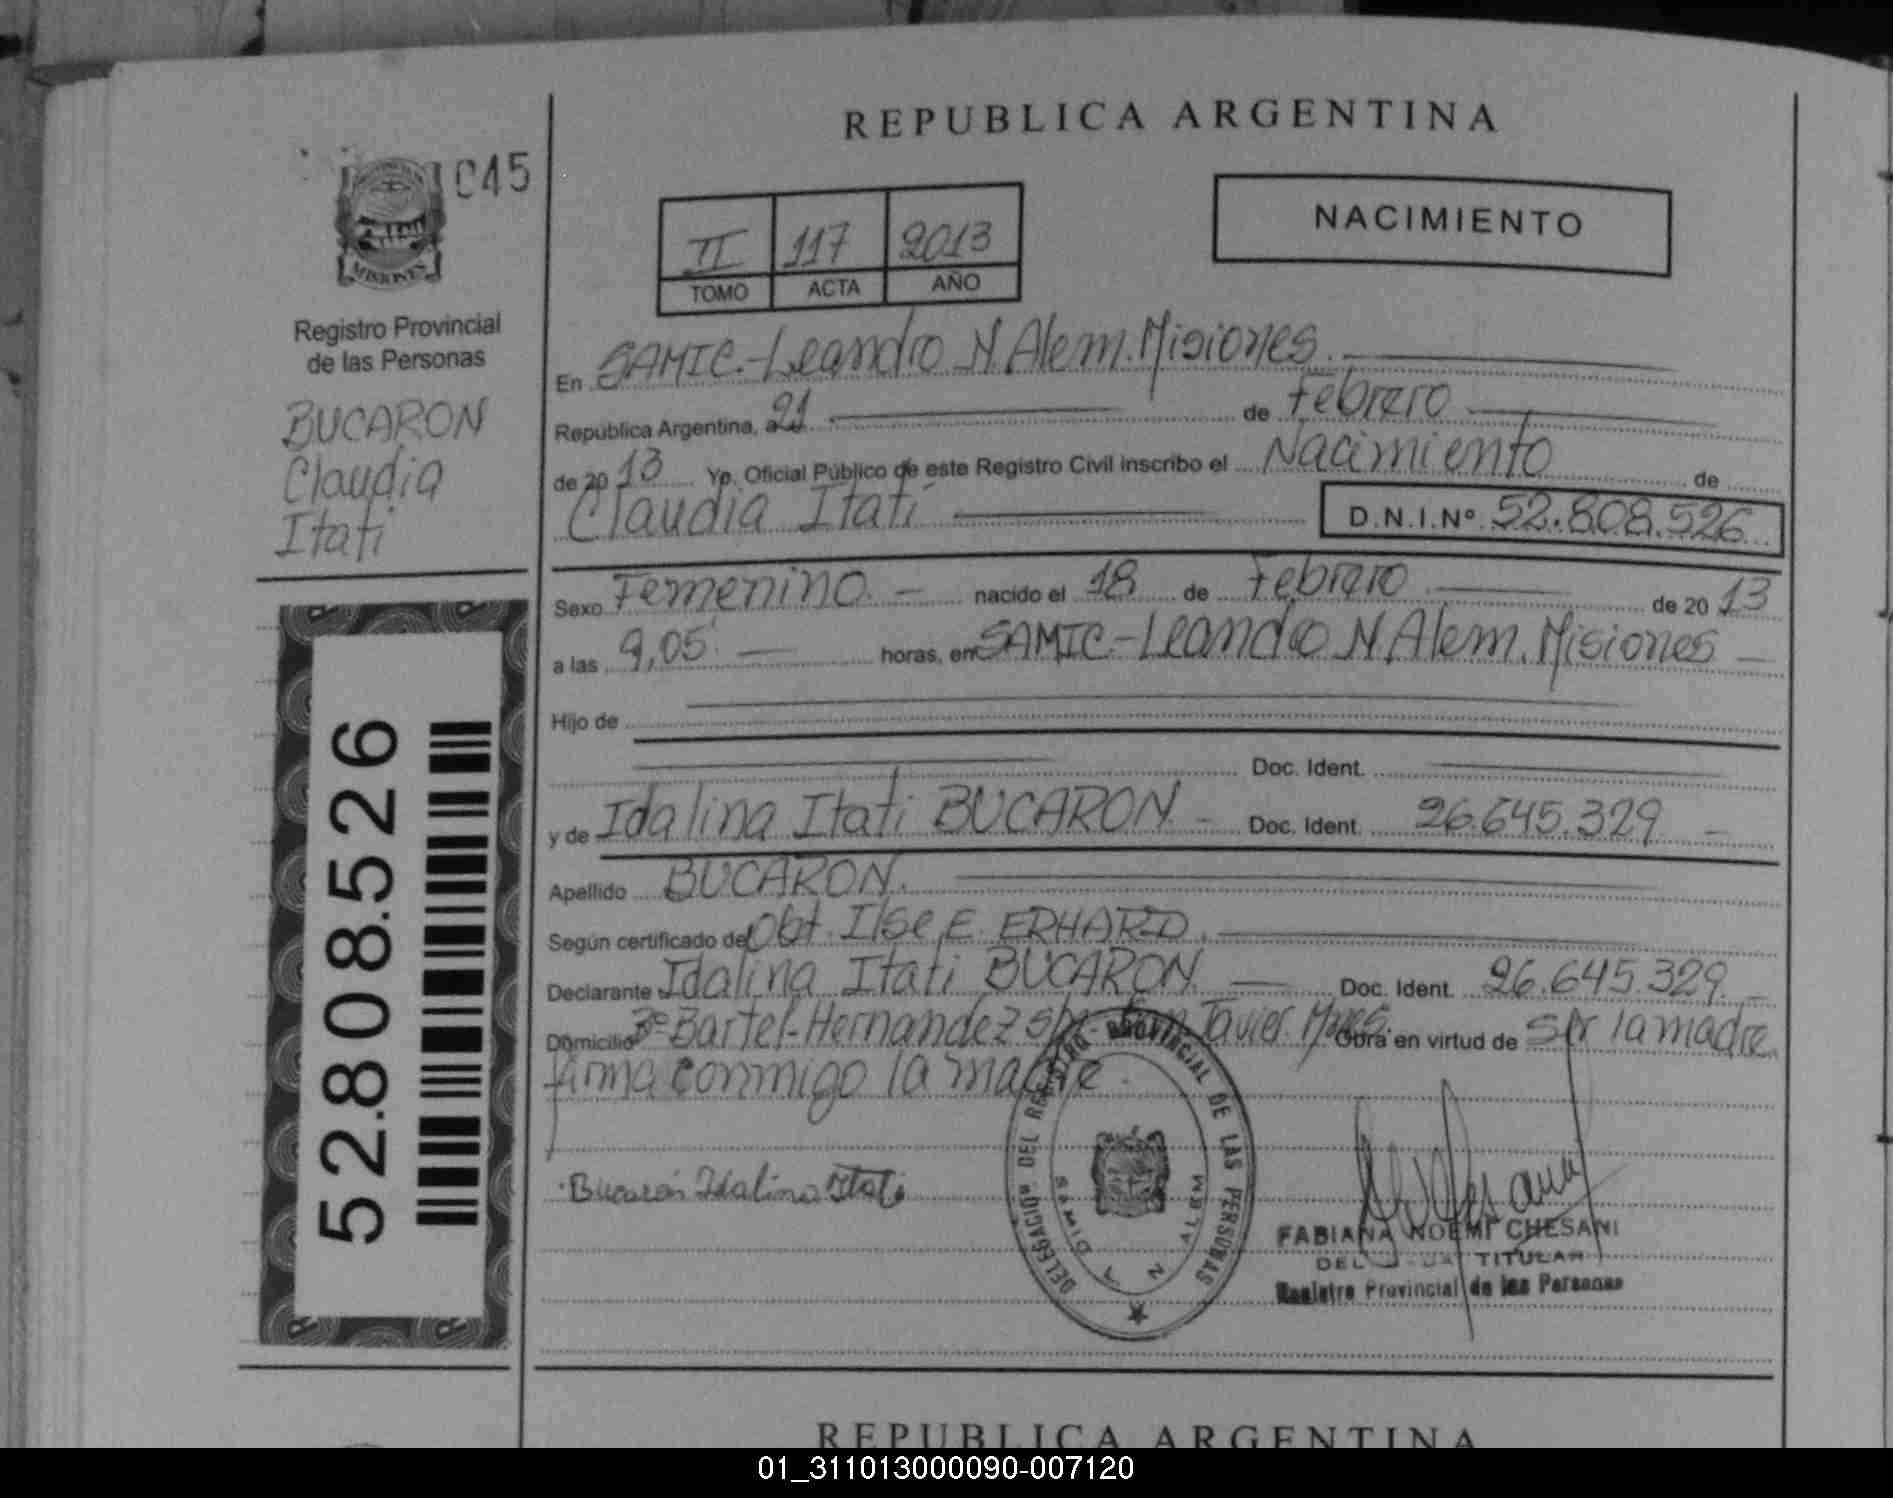 REPUBLICA ARGENTINA
045
MISIONES
Registro Provincial
de las Personas
BUCARON
Claudia
Itati
52.808.526
II 117 2013
TOMO ACTA AÑO
NACIMIENTO
En SAMIC.-Leandro N. Alem. Misiones.
República Argentina, a 21 de Febrero
de 20 13 Yo, Oficial Público de este Registro Civil inscribo el Nacimiento de
Claudia Itatí D.N.I.Nº 52.808.526
Sexo Femenino. nacido el 18 de Febrero de 20 13
a las 9,05 horas, en SAMIC.-Leandro N. Alem. Misiones
Hijo de
Doc. Ident.
y de Idalina Itati BUCARON Doc. Ident. 26.645.329
Apellido BUCARON.
Según certificado de Obt. Ilse E. ERHARD.
Declarante Idalina Itati BUCARON Doc. Ident. 26.645.329
Domicilio Bº Bartel-Hernandez Javier. Obra en virtud de ser la madre.
firma conmigo la madre.
Bucarón Idalina Itati
DELEGACION DEL REGISTRO PROVINCIAL DE LAS PERSONAS
N ALEM
FABIANA NOEMI CHESANI
TITULAR
Registro Provincial de las Personas
REPUBLICA ARGENTINA
01_311013000090-007120